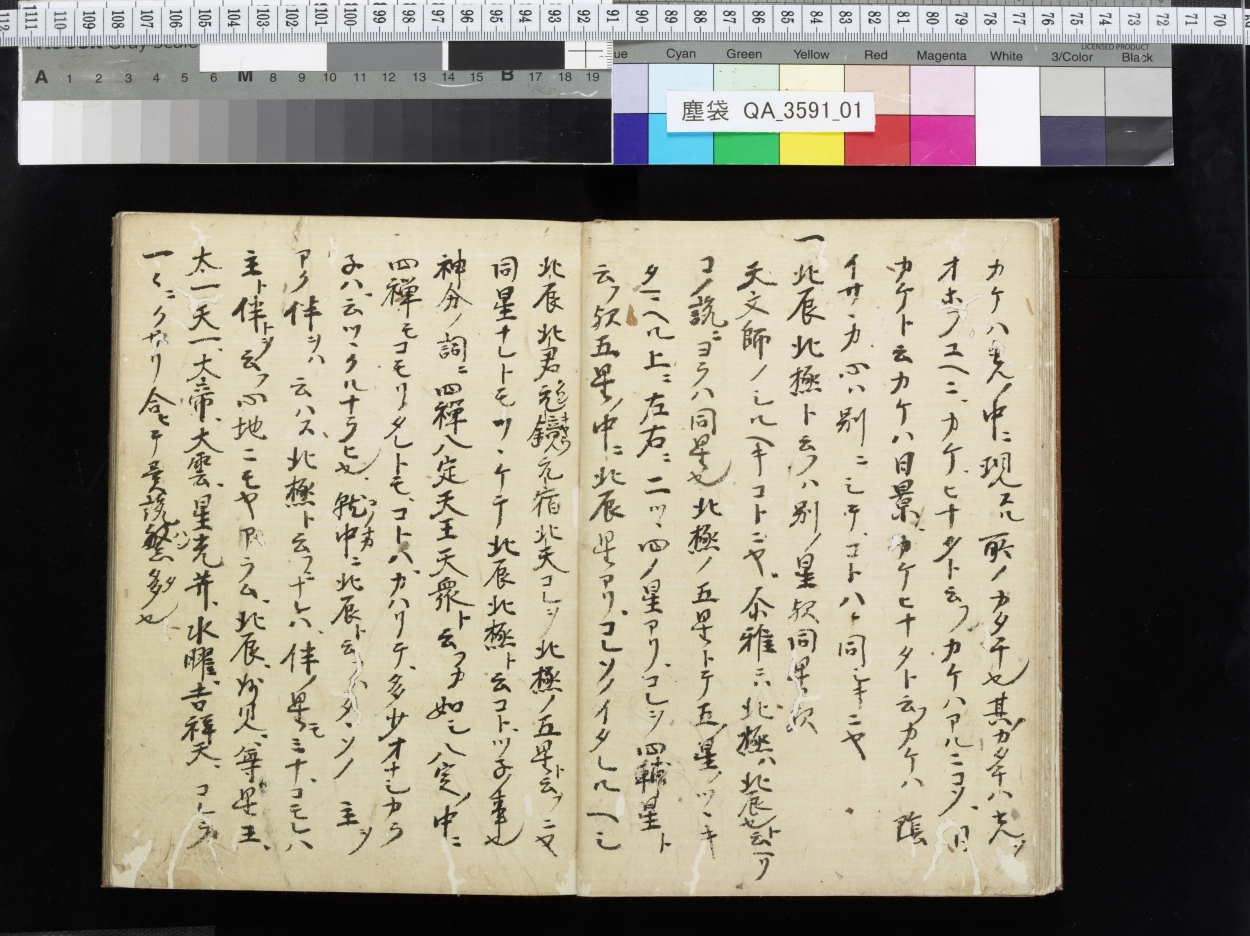 塵袋 QA_3591_01
Cyan Green Yellow Red Magenta White 3/Color Black
LICENSED PRODUCT
A 1 2 3 4 5 6 M 8 9 10 11 12 13 14 15 B 17 18 19
カケハ光ノ中ニ現スル所ノカタチ也其カタチハ光ヲ
オホフユヘニカケヒナタト云フカケハアルニコソ日
カケト云カケハ日景カケヒナタト云フカケハ陰
イサヽカ心ハ別ニシテコトハヽ同シキニヤ
一北辰北極ト云フハ別ノ星歟同星歟
天文師ノシルヘキコトニヤ尓雅ニハ北極ハ北辰也ト云ヘリ
コノ説ニヨラハ同星也北極ノ五星トテ五ノ星ノツヽキ
タニヘル上ニ左右ニ二ツヽ四ノ星アリコレヲ四輔星ト
云フ歟五星ノ中ニ北辰星アリコレソノイタレルヘシ
北辰北君
元宿北天コレヲ北極ノ五星ト云フニヤ
同星ナレトモツヽケテ北辰北極ト云コトツ子ノ事也
神分ノ詞ニ四禅八定天王天衆ト云フカ如シ八定ノ中ニ
四禅モコモリタレトモコトハカハリテ多少オナシカラ
子ハ云ツヽクルナラヒ也就中ニ北辰ト云
主ヲ
アク伴ヲハ云ハス北極ト云フナレハ伴ノ星モミナコモレハ
主ト伴トヲ云フ心地ニモヤアラム北辰妙見等星王
太一天一大帝大雲星光并水曜吉祥天コレラ
一々ニクサリ合セテ異説繁多也